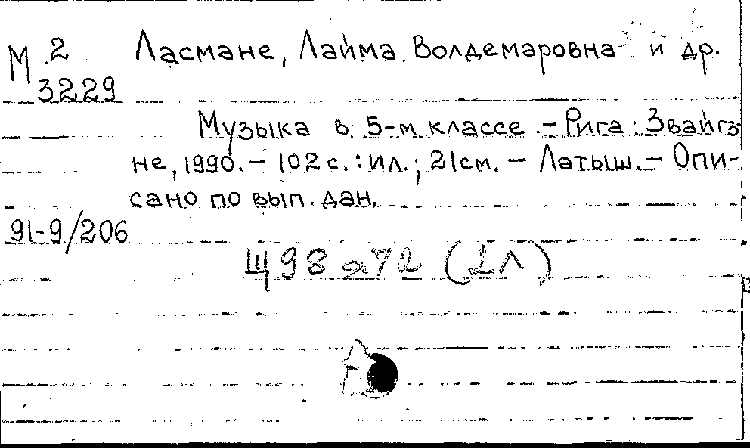 М 2
3229
Ласмане, Лайма Волдемаровна и др.
Музыка в 5-м классе - Рига: Звайгз
не, 1990. - 102 с. : ил.; 21 см. - Латыш. - Опи-
сано по вып. дан.
91-9/206
Щ98я72 (2Л)